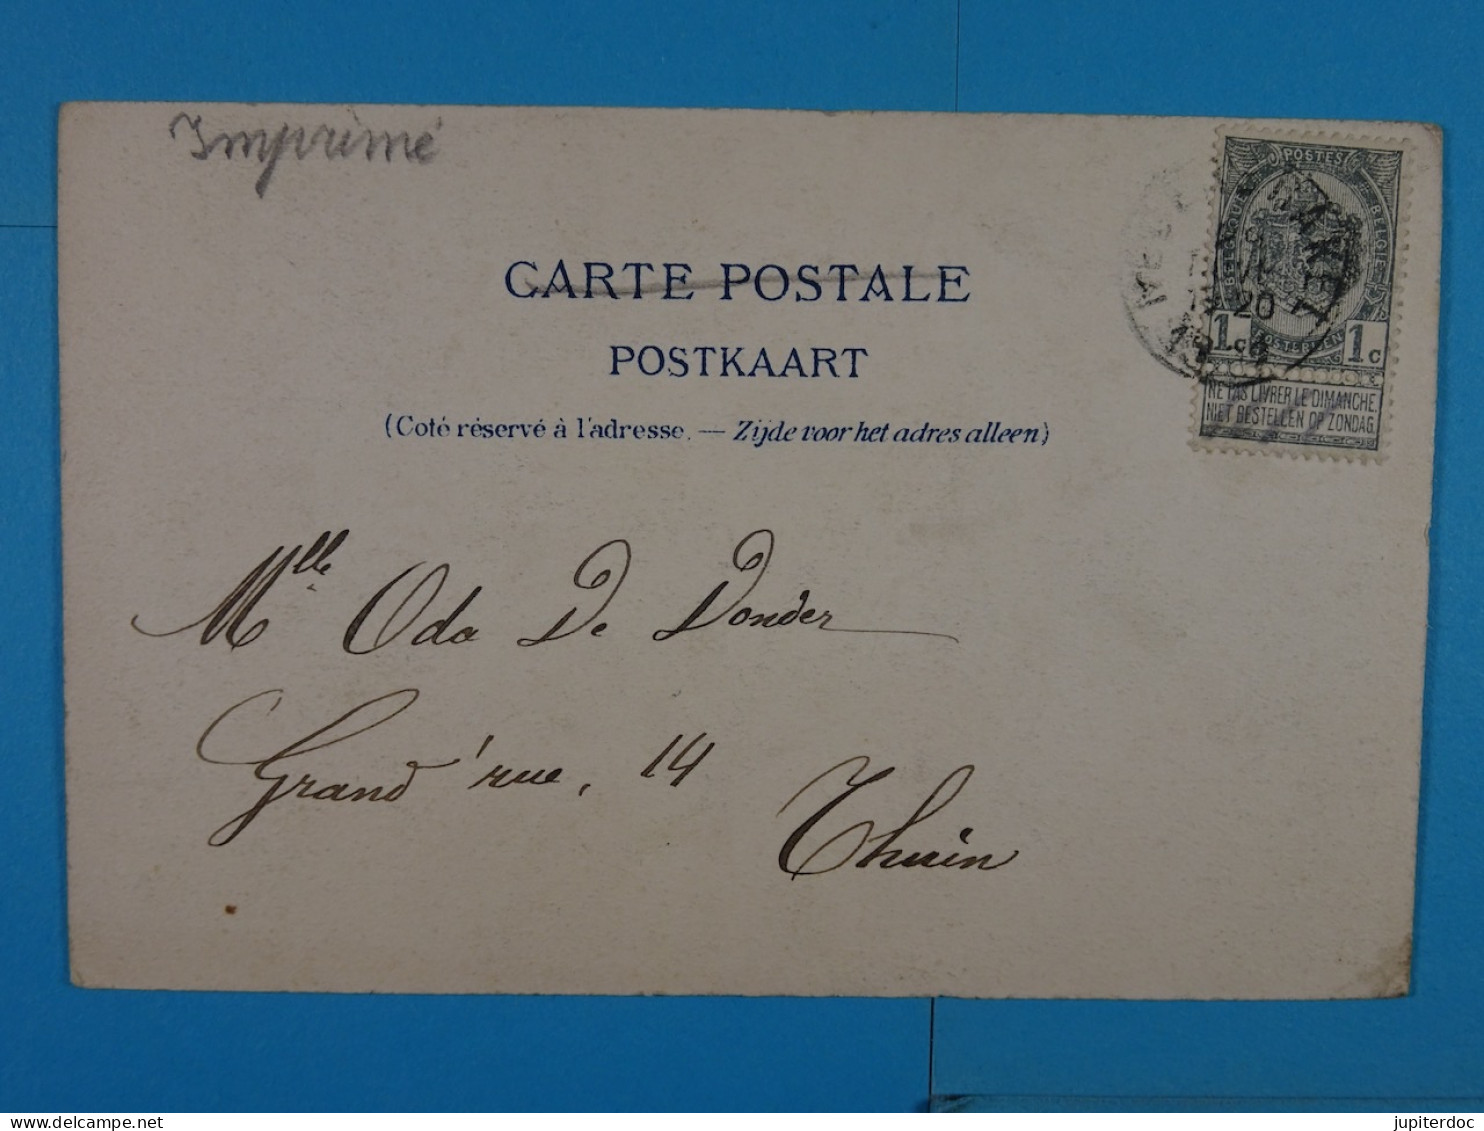 Imprimé
POSTES
BELGIQUE
BELGIË
20
1c 1c
POSTERIJEN
NE PAS LIVRER LE DIMANCHE.
NIET BESTELLEN OP ZONDAG.
CARTE POSTALE
POSTKAART
(Coté réservé à l'adresse. — Zijde voor het adres alleen)
Mlle Oda De Donder
Grand'rue, 14
Thuin
www.delcampe.net
jupiterdoc